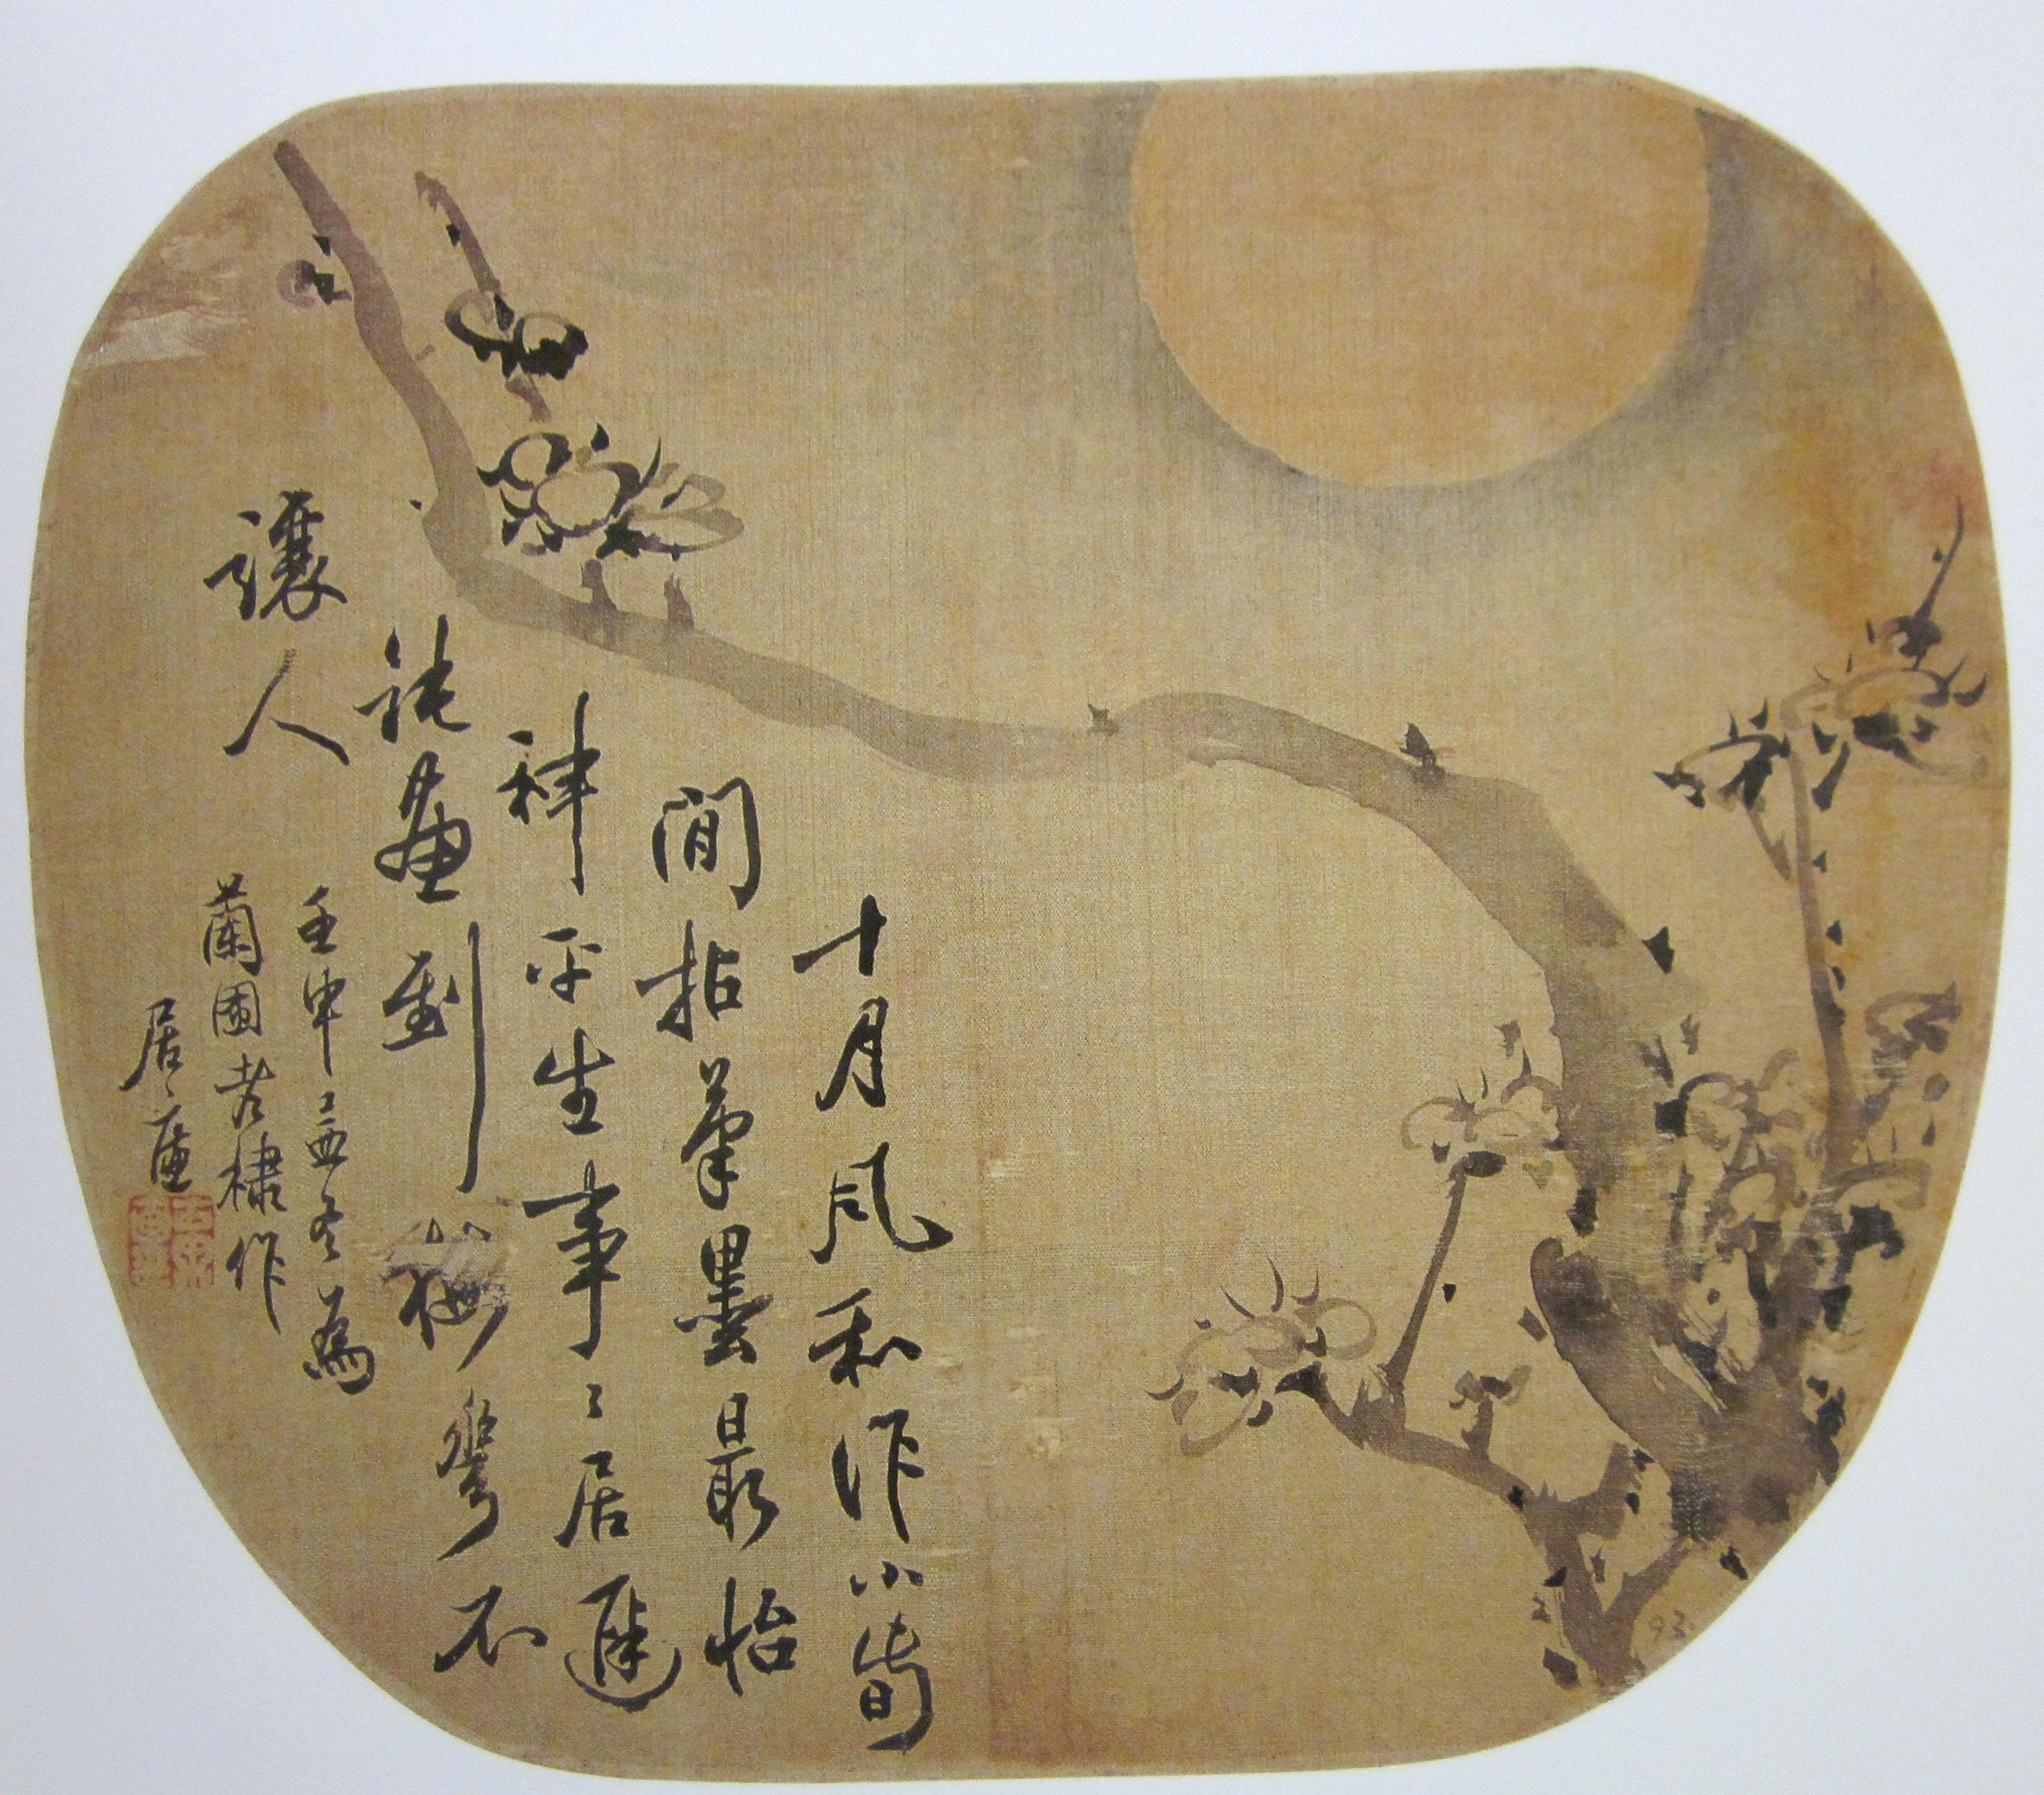 十月風和作小春
閒拈筆墨最怡
神平生事〻居遲
鈍畫到梅華不
讓人
壬申孟冬為
蘭圃老棣作
居廉